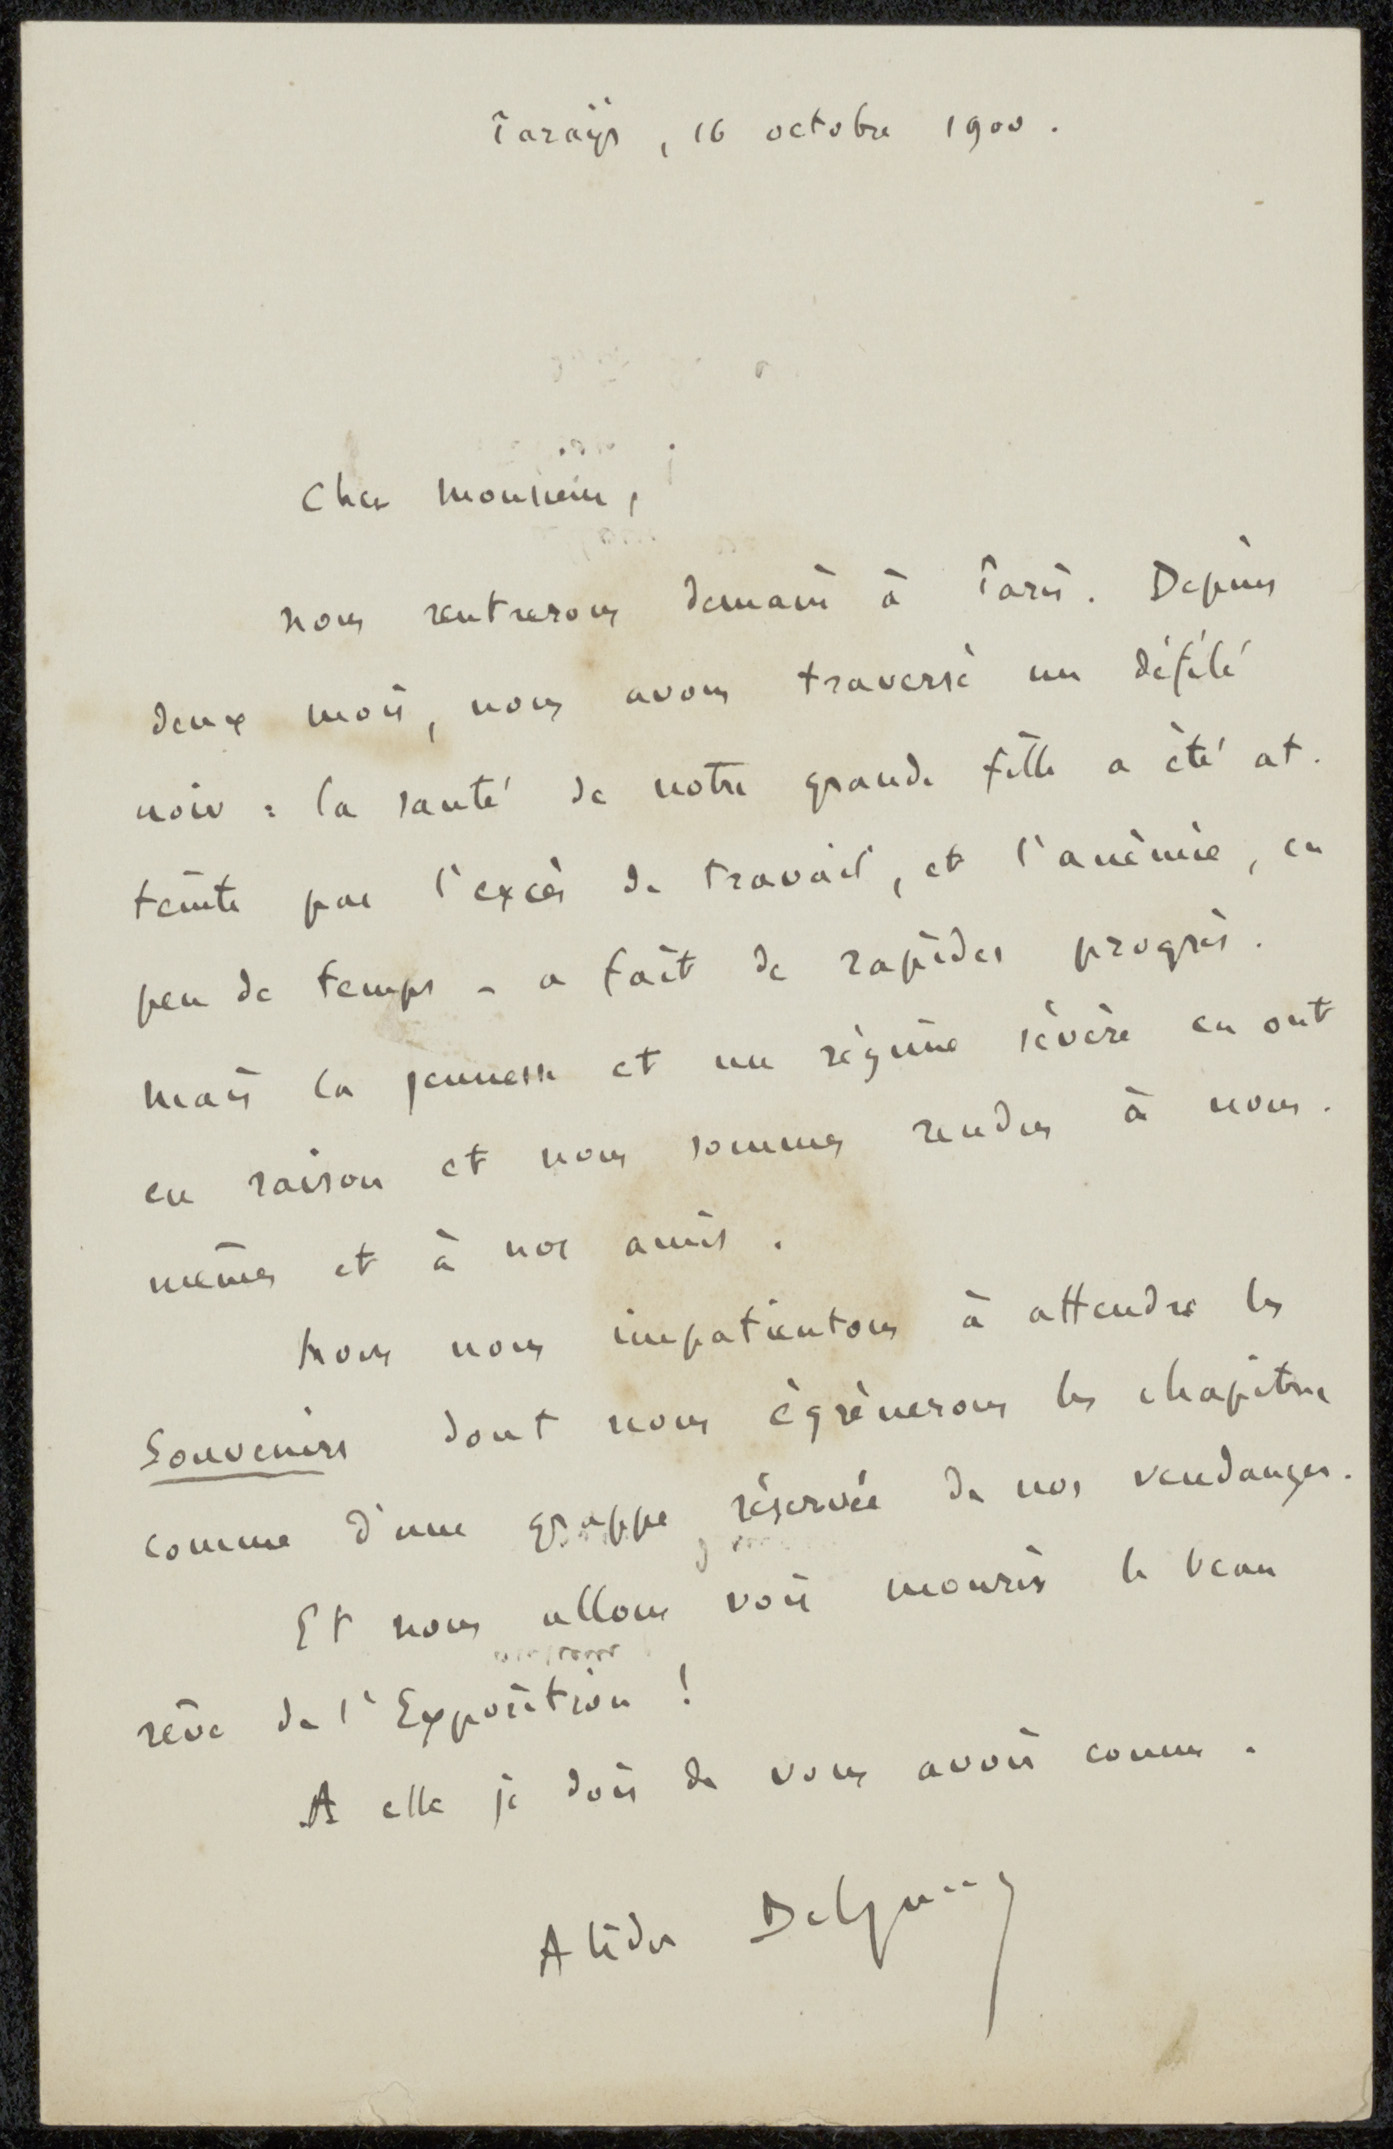 Parays, 16 octobre 1900.
Cher Monsieur,
nous rentrerons demain à Paris. Depuis
deux mois, nous avons traversé un défilé
noir : la santé de notre grande fille a été at-
teinte par l'excès de travail, et l'anémie, en
peu de temps - a fait de rapides progrès.
Mais la jeunesse et un régime sévère en ont
eu raison et nous sommes rendus à nous-
mêmes et à nos amis.
Nous nous impatientons à attendre les
Souvenirs dont nous égrènerons les chapitres
comme d'une grappe réservée de nos vendanges.
Et nous allons voir mourir le beau
rêve de l'Exposition !
A elle je dois de vous avoir connu.